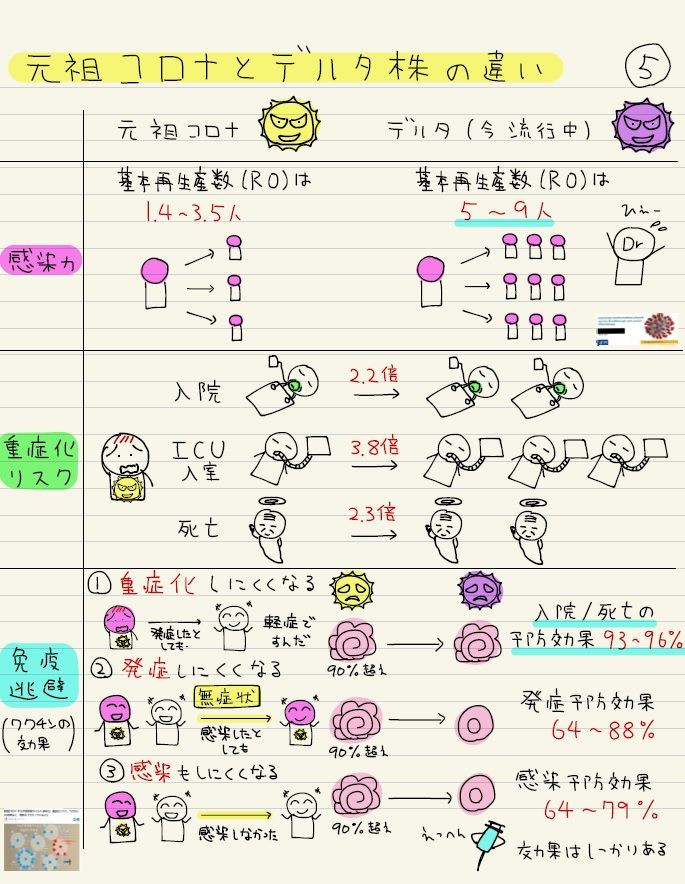 元祖コロナとデルタ株の違い
5
元祖コロナ
デルタ(今流行中)
感染力
基本再生産数(R0)は
1.4~3.5人
基本再生産数(R0)は
5~9人
ひえー
Dr
重症化
リスク
入院
2.2倍
ICU
入室
3.8倍
死亡
2.3倍
免疫
逃避
(ワクチンの
効果)
①重症化しにくくなる
発症したと
しても
軽症で
すんだ
90%超え
入院/死亡の
予防効果 93~96%
②発症しにくくなる
無症状
感染したと
しても
90%超え
発症予防効果
64~88%
③感染もしにくくなる
感染しなかった
90%超え
感染予防効果
64~79%
えっへん
効果はしっかりある